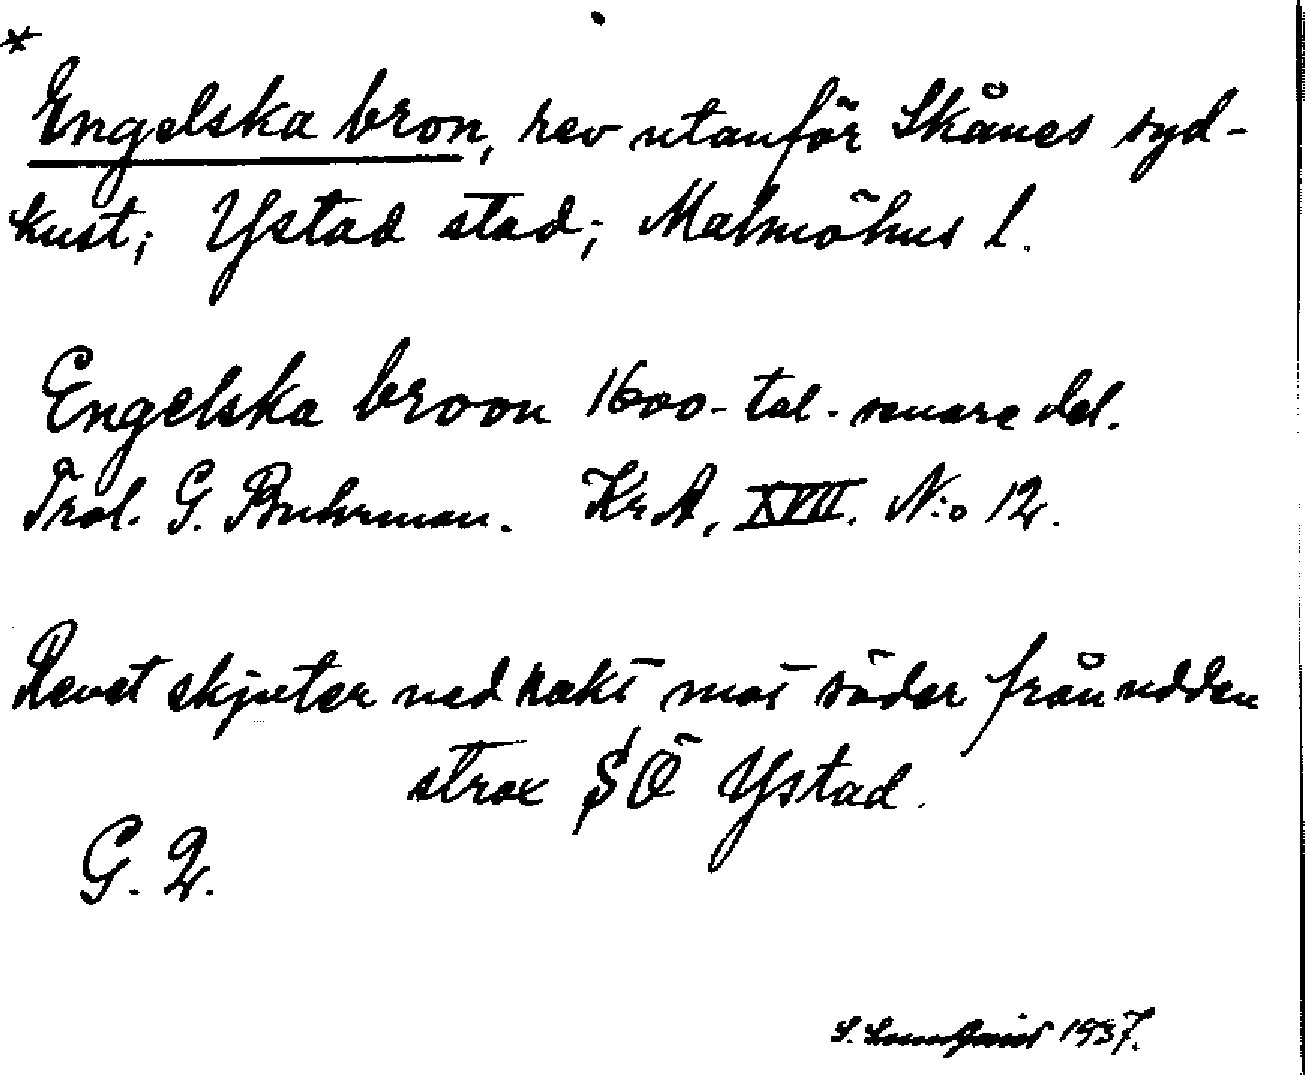 *
Engelska bron, rev utanför Skånes syd-
kust; Ystad stad; Malmöhus l.
Engelska broon 1600-tal. senare del.
Trol. G. Buhrman. KrA, XVII. N:o 12.
Revet skjuter ned rakt mot söder från udden
strax SÖ Ystad.
G. 2.
1937.